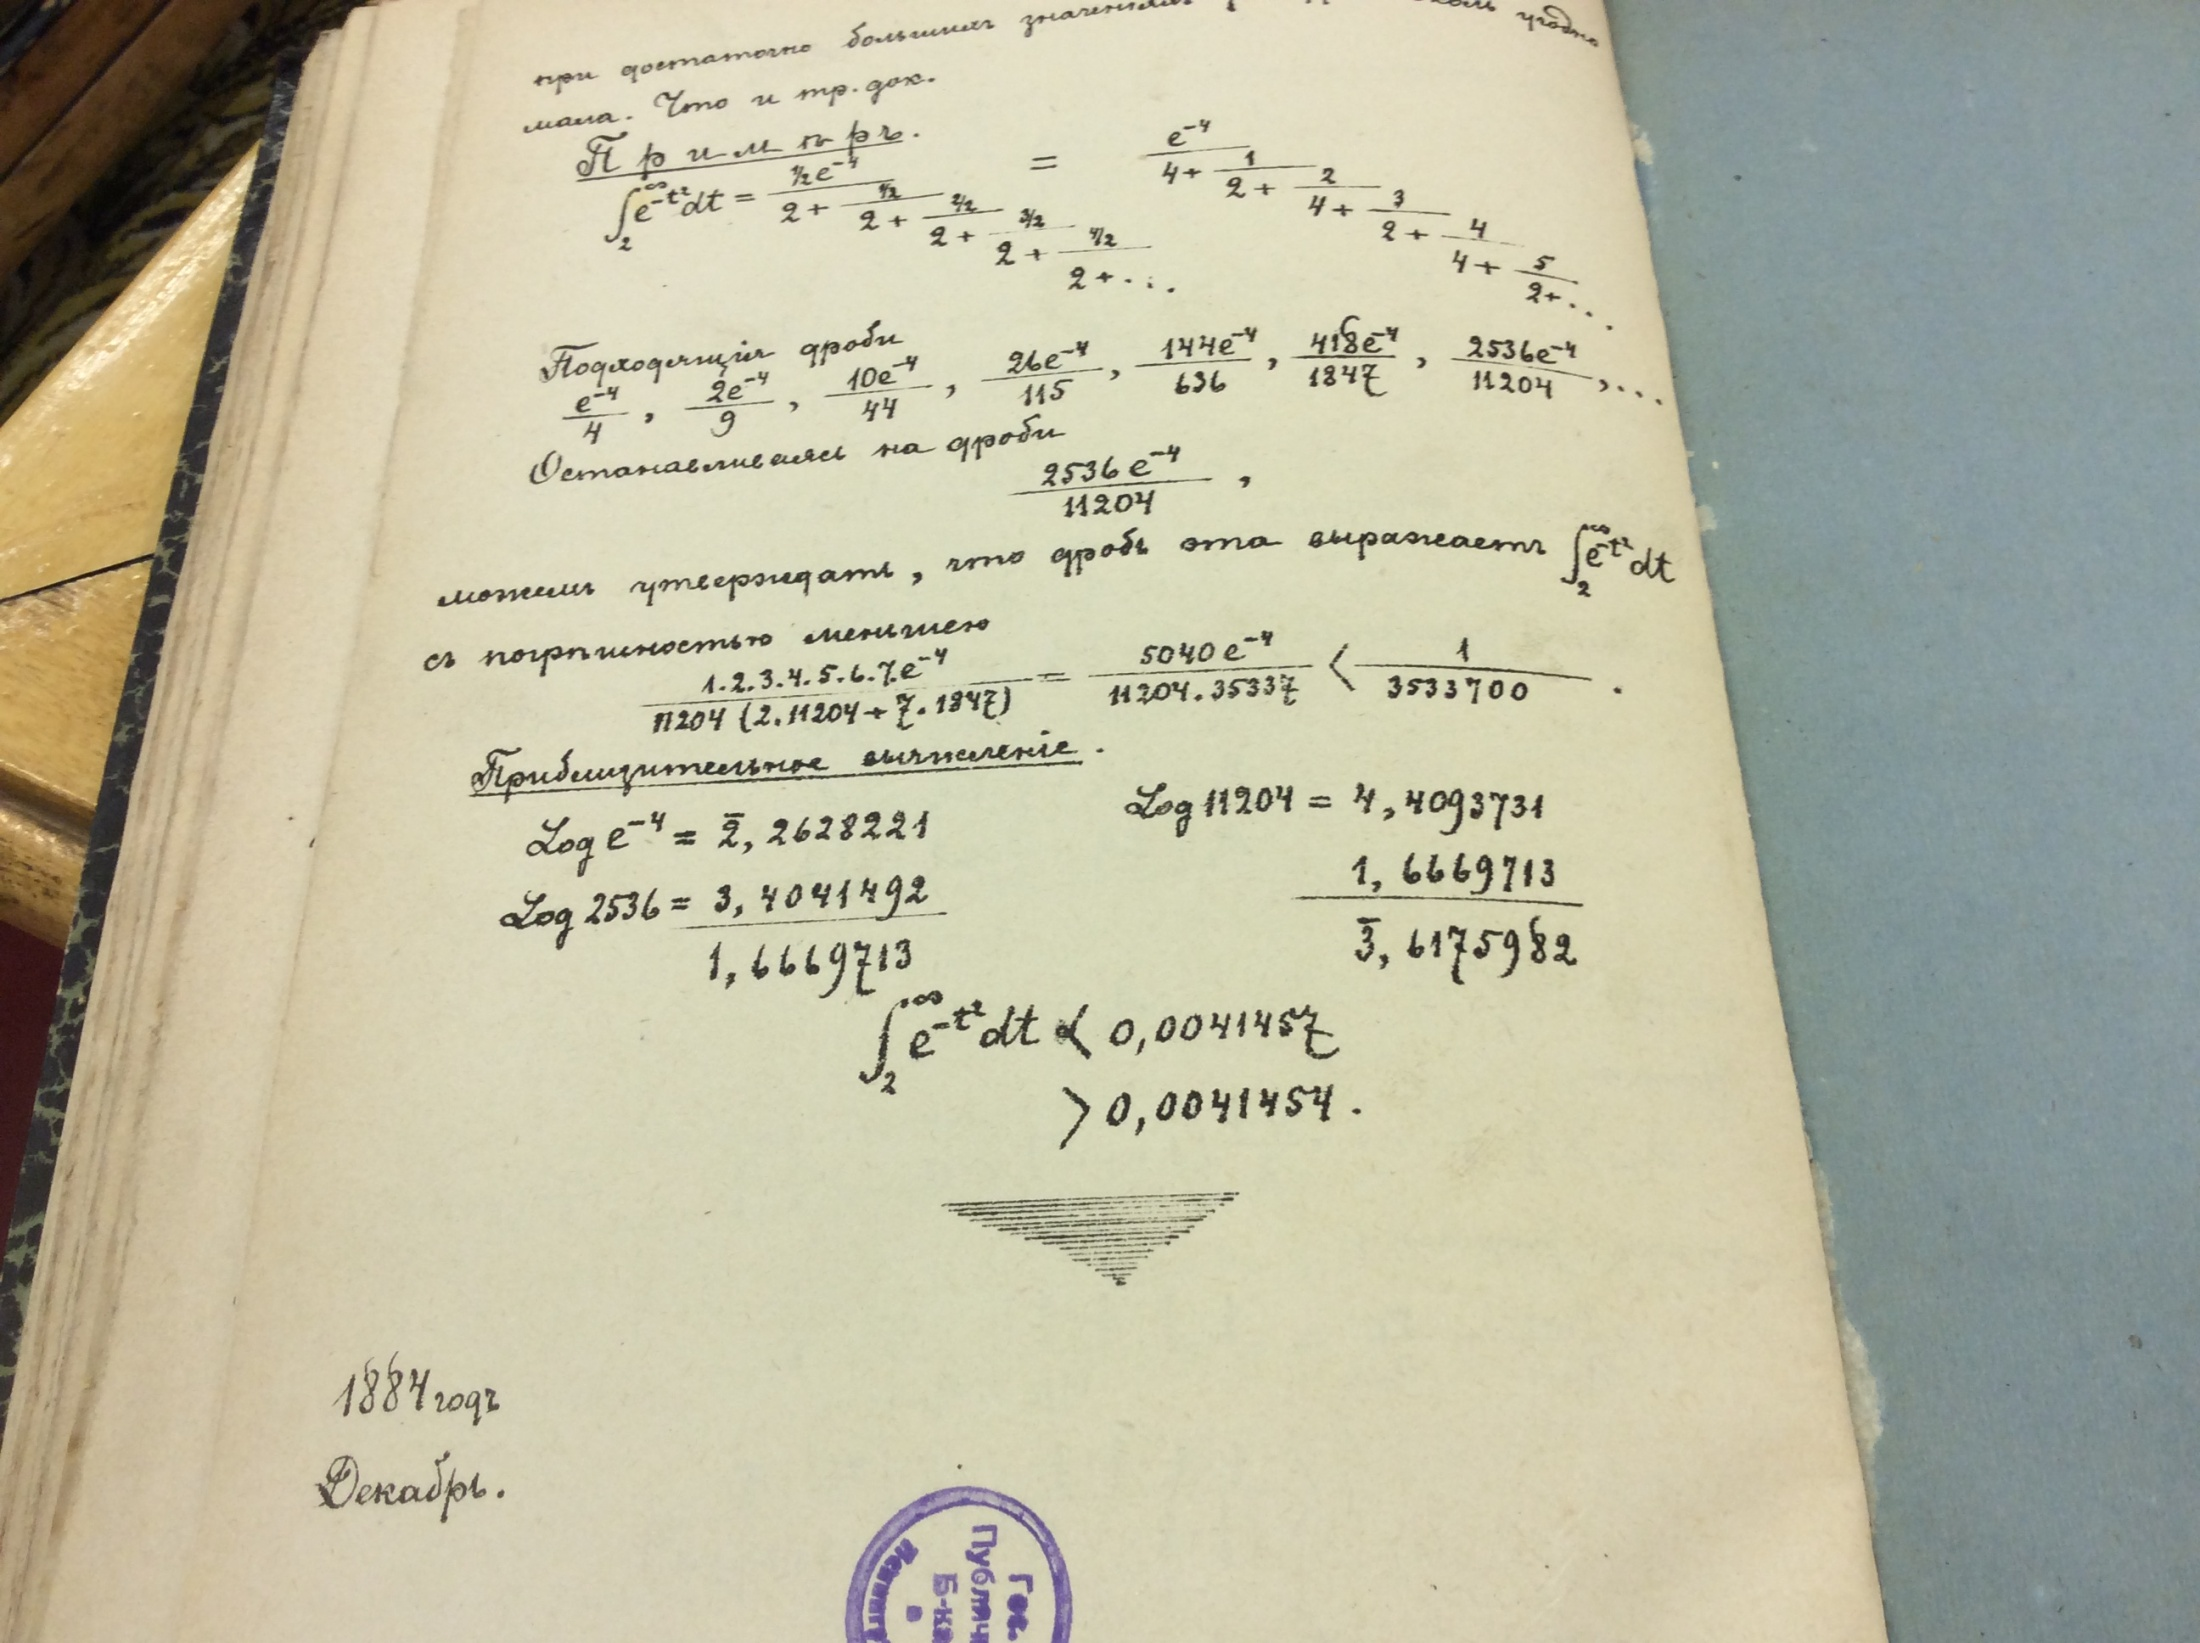 при достаточно большихъ угодно
мала. Что и тр. док.
Примѣръ.
∫₂^∞ e^{-t²}dt = ½e⁻⁴/(2 + ½/(2 + 2/2/(2 + 3/2/(2 + 4/2/(2 + ...))))) = e⁻⁴/(4 + 1/(2 + 2/(4 + 3/(2 + 4/(4 + 5/(2 + ...))))))
Подходящія дроби
e⁻⁴/4, 2e⁻⁴/9, 10e⁻⁴/44, 26e⁻⁴/115, 144e⁻⁴/636, 418e⁻⁴/1847, 2536e⁻⁴/11204, ...
Останавливаясь на дроби
2536e⁻⁴/11204,
можемъ утверждать, что дробь эта выражаетъ ∫₂^∞ e^{-t²}dt
съ погрѣшностью меньшею
1.2.3.4.5.6.7.e⁻⁴/11204(2.11204+7.1847) = 5040e⁻⁴/11204.35337 < 1/3533700.
Приблизительное вычисленіе.
Log e⁻⁴ = 2̄,2628221
Log 2536 = 3,4041492
1,6669713
Log 11204 = 4,4093731
1,6669713
3̄,6175982
∫₂^∞ e^{-t²}dt < 0,0041457
> 0,0041454.
1884 годъ
Декабрь.
Гос.
Публичн
Б-ка
в